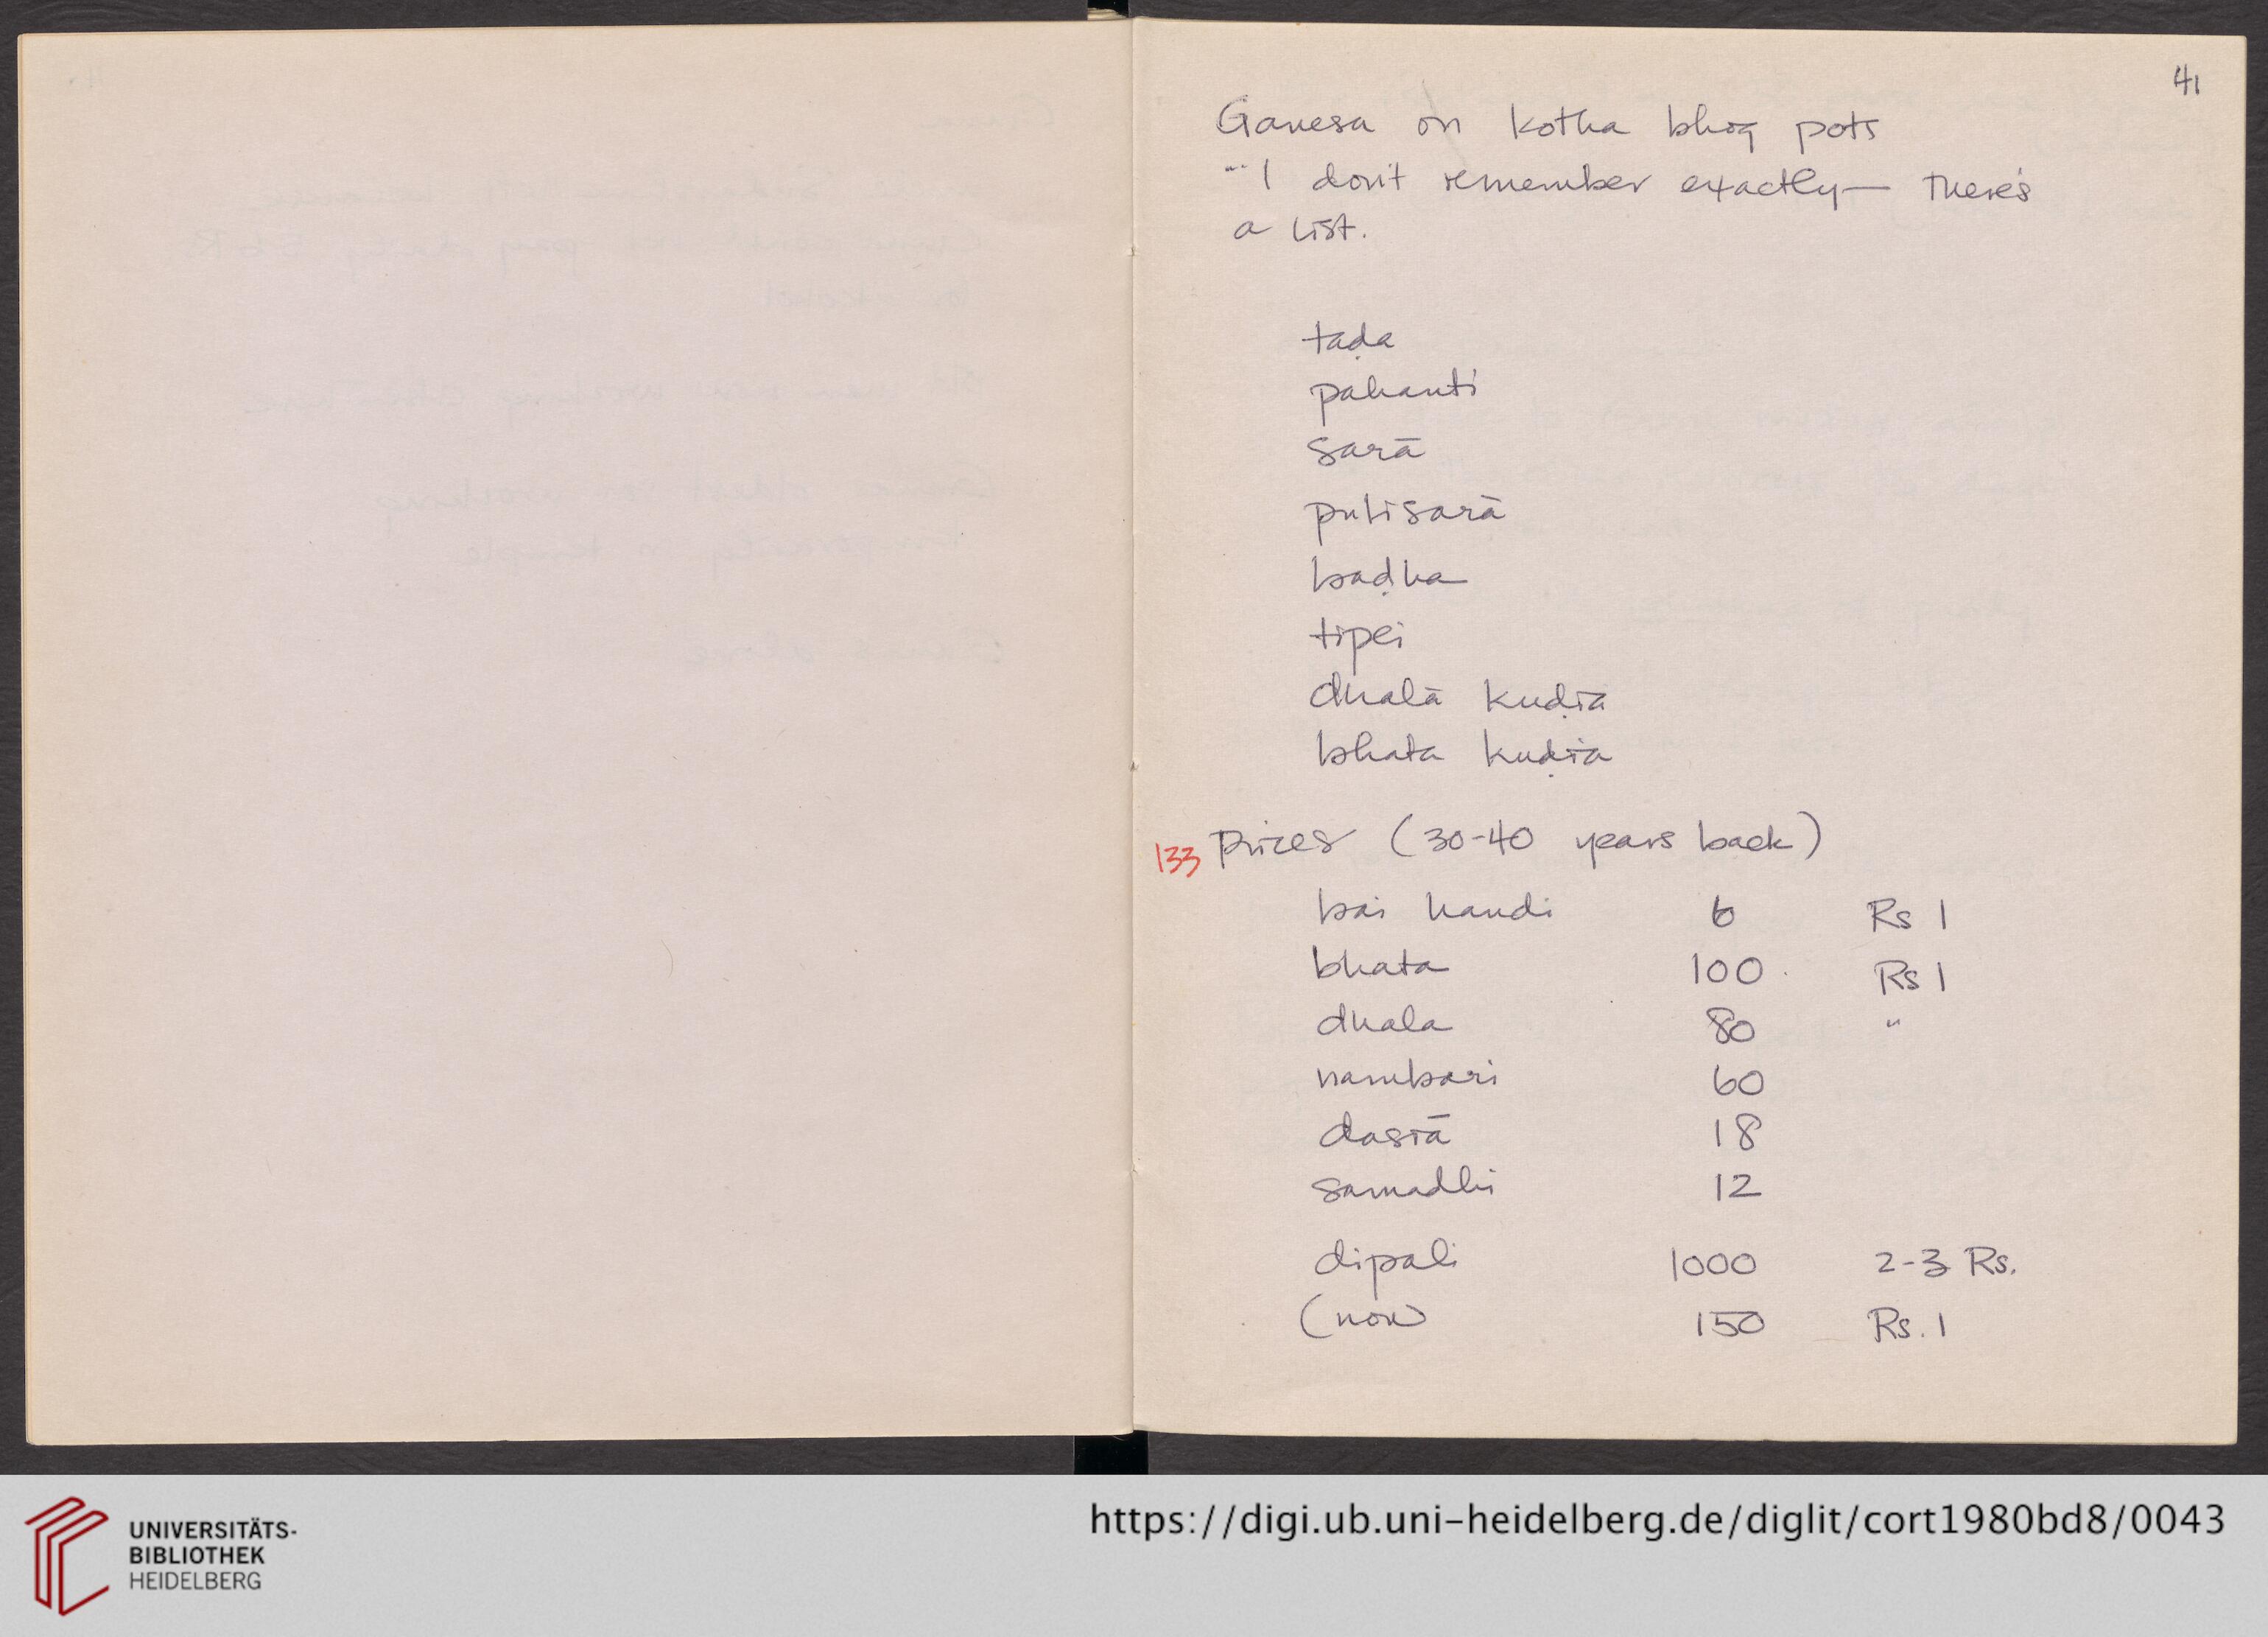 41
Ganesa on kotha bhog pots
"I don't remember exactly— there's
a list.
taḍa
pahanti
sarā
puḷisarā
baḍha
tipei
dhalā kuḍiā
bhata kuḍiā
133 Prices (30-40 years back)
bai handi 6 Rs 1
bhata 100. Rs 1
dhala 80 "
nambari 60
dasiā 18
samadhi 12
dipali 1000 2-3 Rs.
(now 150 Rs. 1
UNIVERSITÄTS-
BIBLIOTHEK
HEIDELBERG
https://digi.ub.uni-heidelberg.de/diglit/cort1980bd8/0043